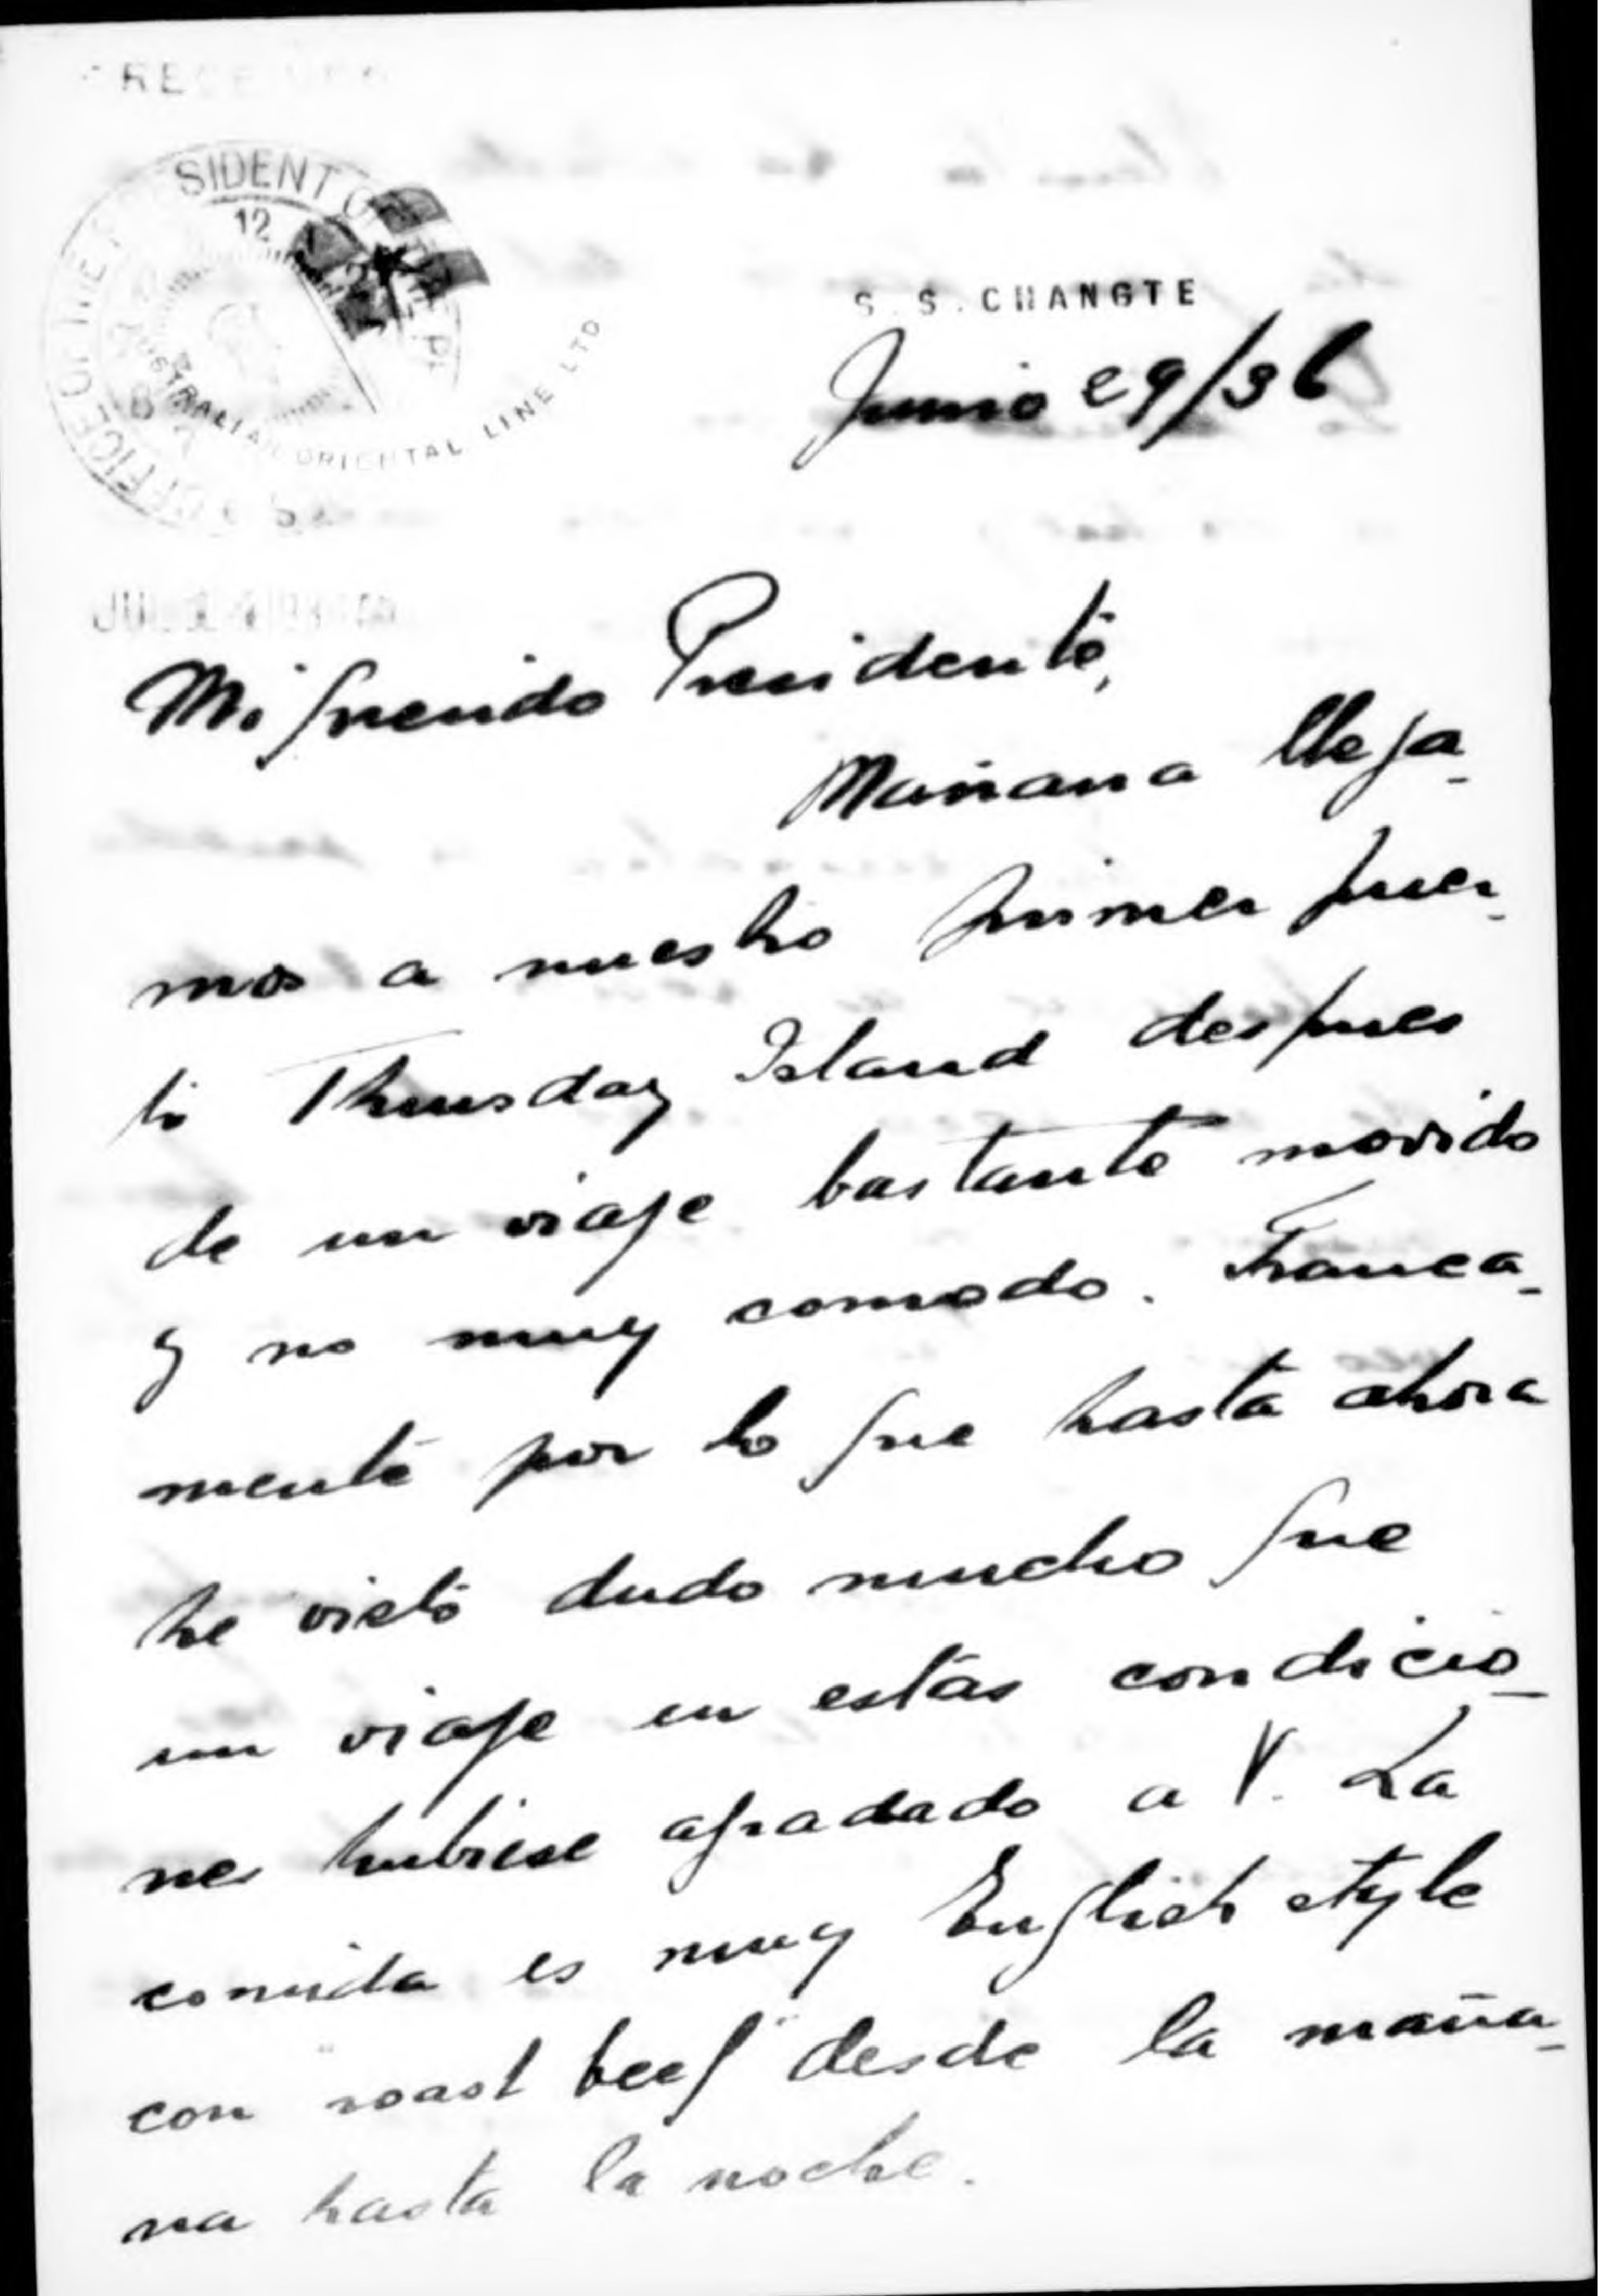 RECEIVED
OFFICE OF THE PRESIDENT OF THE
12
AUSTRALIAN ORIENTAL LINE LTD
S. S. CHANGTE
Junio 29/36
JUL
Mi querido Presidente,
Mañana llega-
mos a nuestro primer puer-
to Thursday Island despues
de un viaje bastante movido
y no muy comodo. Franca-
mente por lo que hasta ahora
he visto dudo mucho que
un viaje en estas condicio-
nes hubiese agradado a V. La
comida es muy English style
con "roast beef" desde la maña-
na hasta la noche.